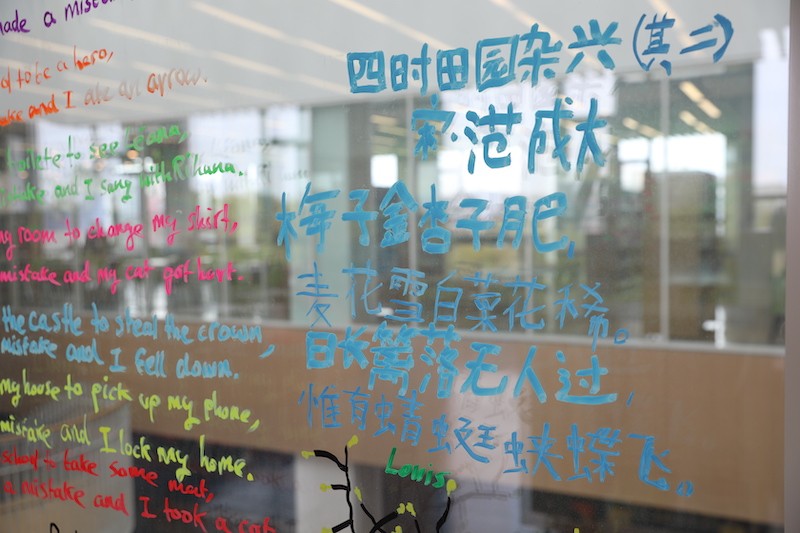 made a
to be a hero,
and I ate an arrow.
to see
and I sang with Rihana.
my room to change my shirt,
mistake and my cat got hurt.
the castle to steal the crown,
mistake and I fell down.
my house to pick up my phone,
mistake and I lock my home.
school to take some meat,
a mistake and I took a cat
四时田园杂兴(其二)
宋·范成大
梅子金杏子肥,
麦花雪白菜花稀。
日长篱落无人过,
惟有蜻蜓蛱蝶飞。
Louis